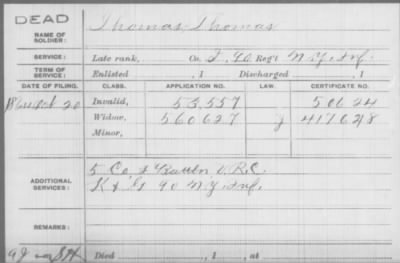 DEAD
NAME OF SOLDIER: Thomas Thomas
SERVICE: Late rank, Co. I, 90 Reg't N.Y. Inf.
TERM OF SERVICE: Enlisted , 1 Discharged , 1
DATE OF FILING. CLASS. APPLICATION NO. LAW. CERTIFICATE NO.
20 Invalid, 53,557 50624
Widow, 560627 417628
Minor,
ADDITIONAL SERVICES: 5 Co 2 Battn V.R.C.
K & G 90 N.Y. Inf.
REMARKS:
Died , 1 , at